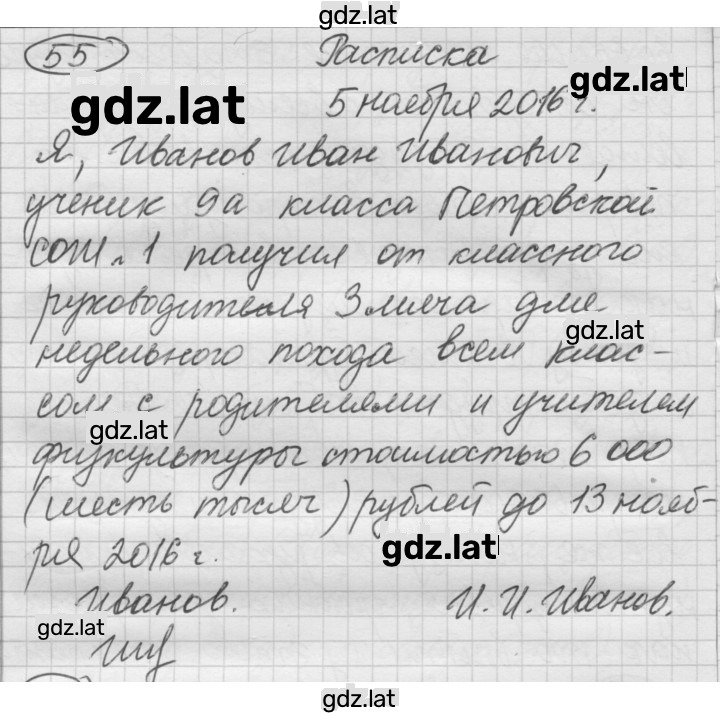 gdz.lat
55
Расписка
gdz.lat
gdz.lat
5 ноября 2016 г.
Я, Иванов Иван Иванович,
ученик 9а класса Петровской
СОШ 1 получил от классного
руководителя 3 мяча для
gdz.lat
недельного похода всем клас-
сом с родителями и учителем
gdz.lat
физкультуры стоимостью 6 000
(шесть тысяч) рублей до 13 нояб-
ря 2016 г.
gdz.lat
Иванов. И. И. Иванов.
gdz.lat
gdz.lat